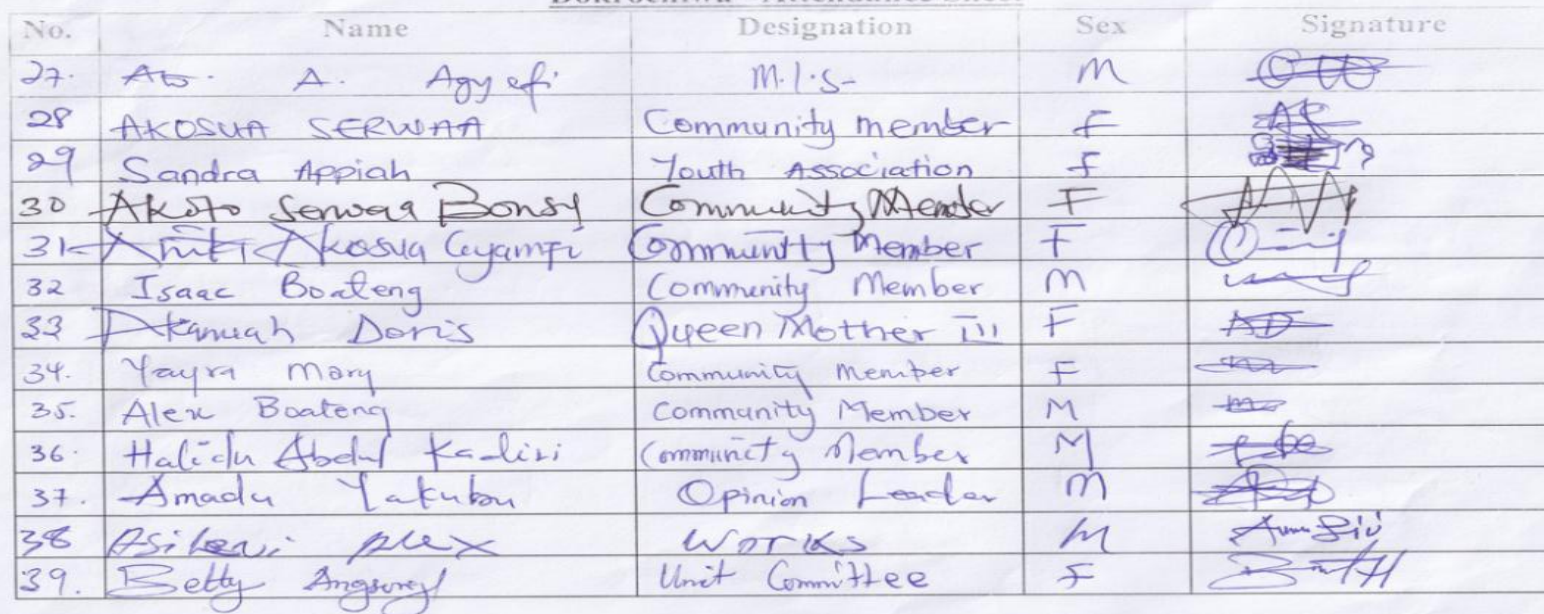 No. Name Designation Sex Signature
27. A. Agyefi M.I.S- M
28 AKOSUA SERWAA Community member F
29 Sandra Appiah Youth Association F
30 Akoto Serwaa Bonsu Community Member F
31 Akosua Gyamfi Community Member F
32 Isaac Boateng Community Member M
33 Akanuah Doris Queen Mother III F
34. Yayra Mary Community Member F
35. Alex Boateng Community Member M
36. Halidu Abdul Kadiri Community Member M
37. Amadu Yakubu Opinion Leader M
38 Alex Works M
39. Betty Unit Committee F